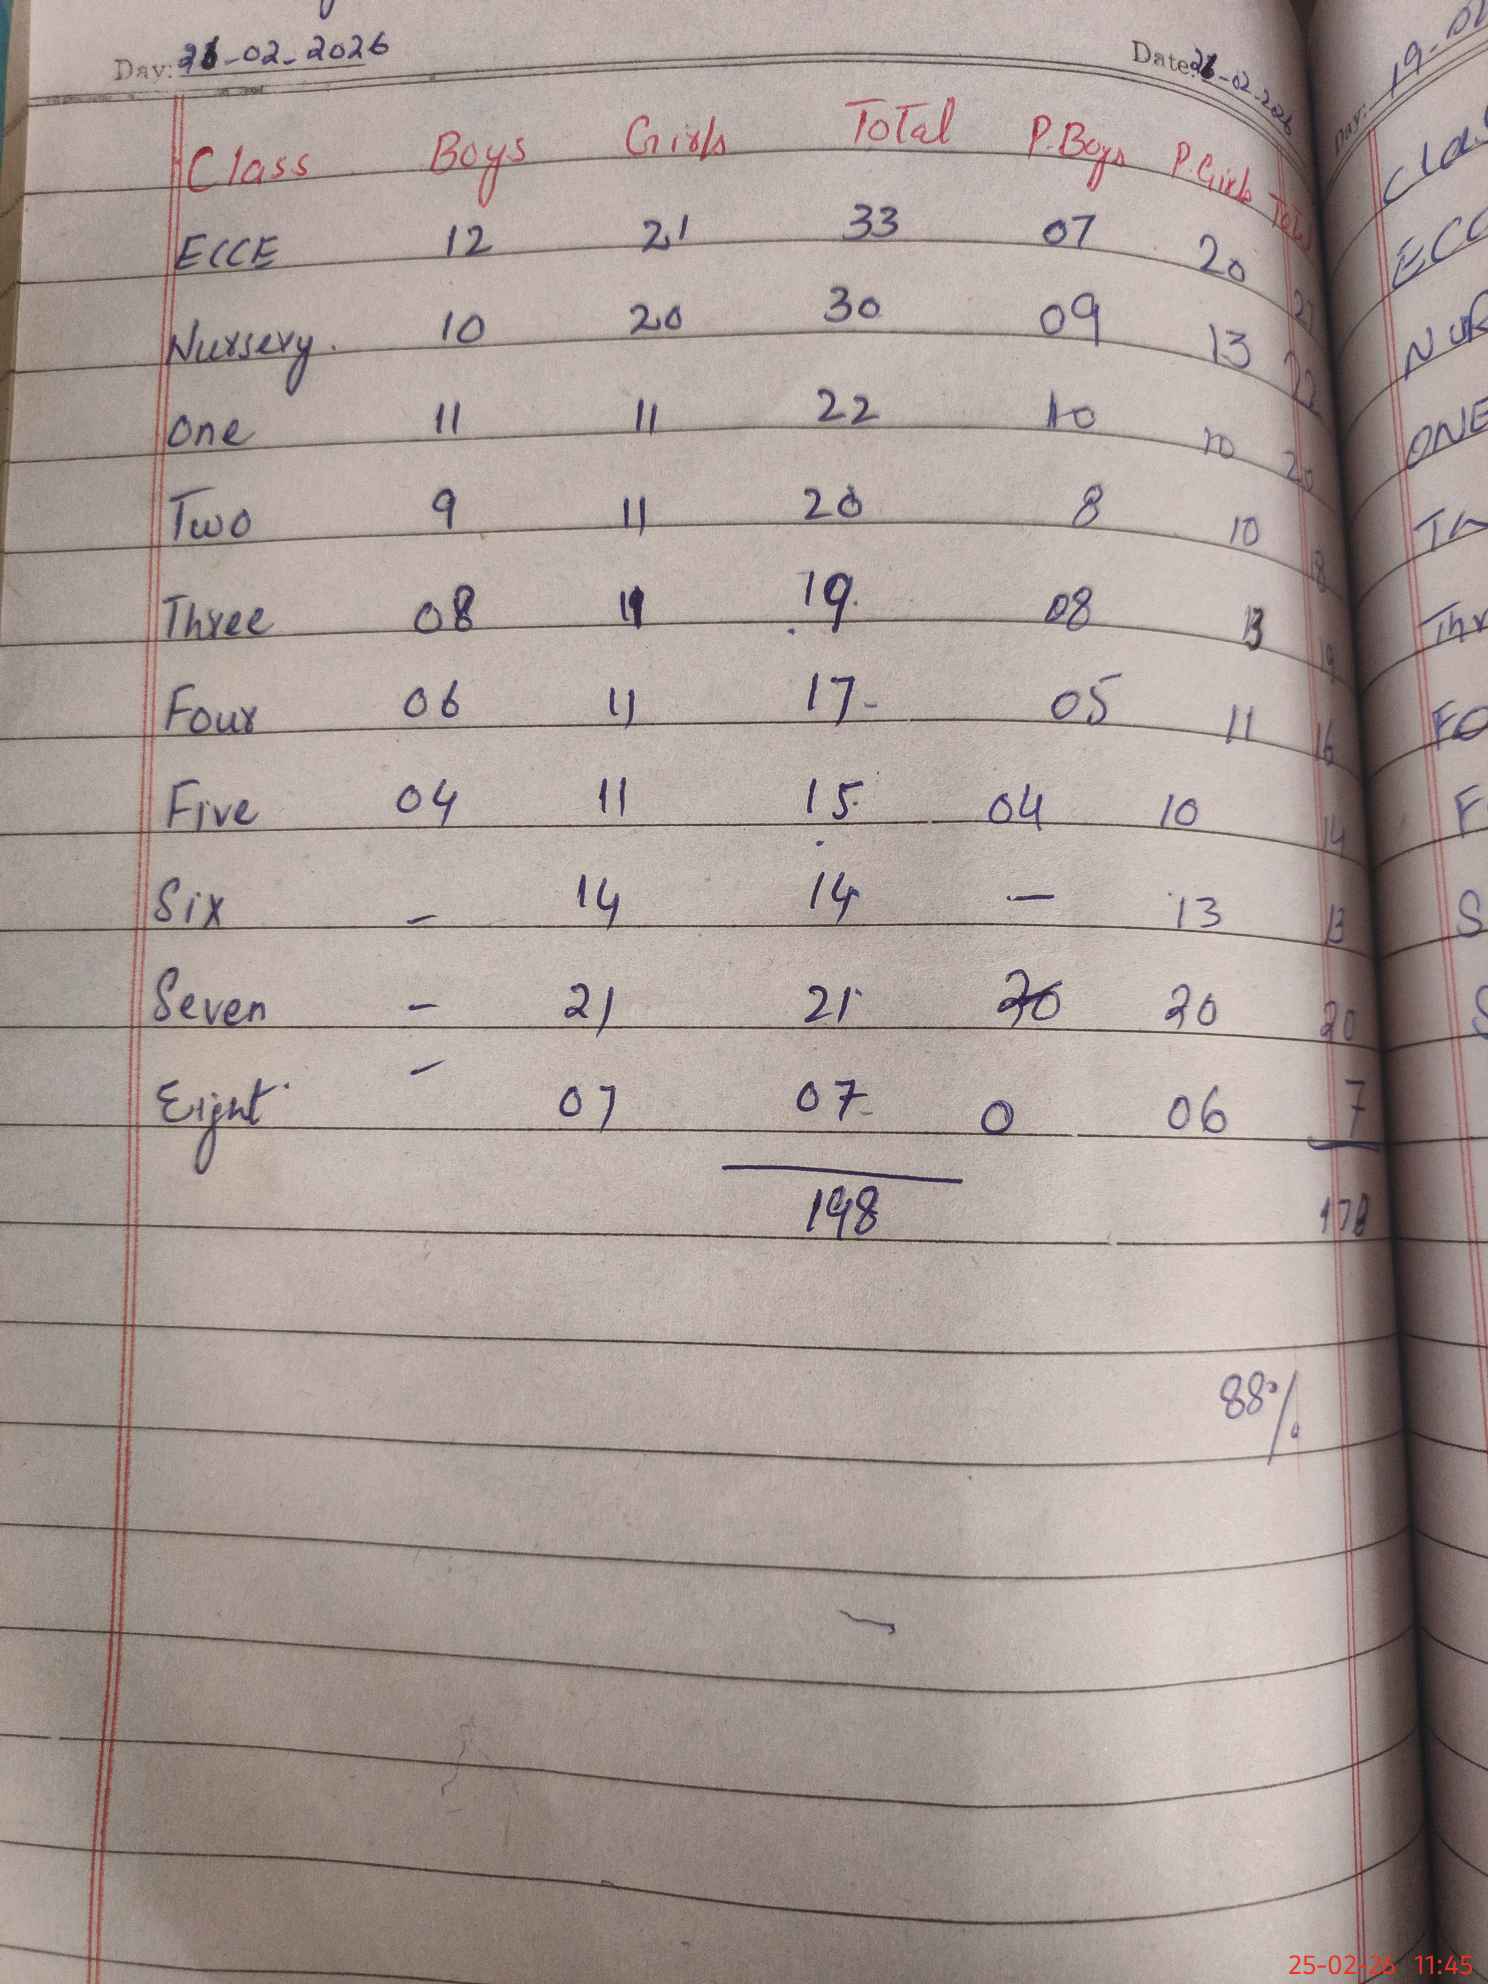 Day: 21-02-2026 Date: 21-02-2026
Class Boys Girls Total P.Boys P.Girls Total
ECCE 12 21 33 07 20 27
Nursery. 10 20 30 09 13 22
One 11 11 22 10 10 20
Two 9 11 20 8 10 18
Three 08 11 19. 08 13 19
Four 06 11 17- 05 11 16
Five 04 11 15. 04 10 14
Six - 14 14 - 13 13
Seven - 21 21 20 20 20
Eight - 07 07- 0 06 7
198 178
88%
Day: 19-02
Cla
ECC
NUR
ONE
Thr
FO
F
S
S
25-02-26 11:45